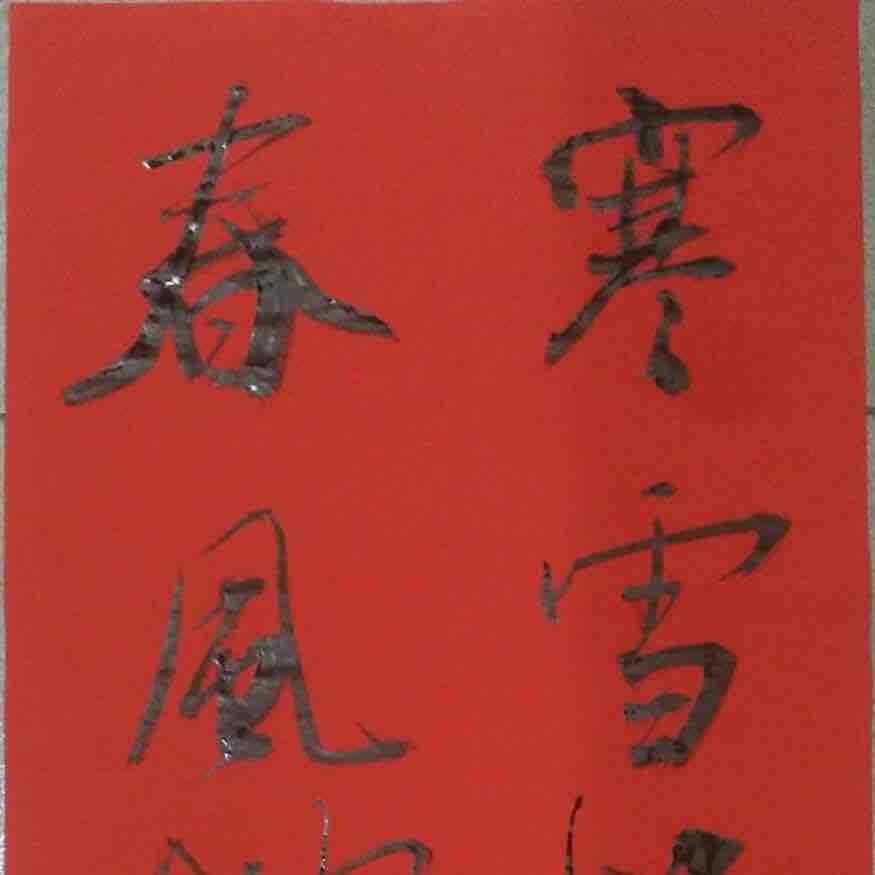 寒雪
春風